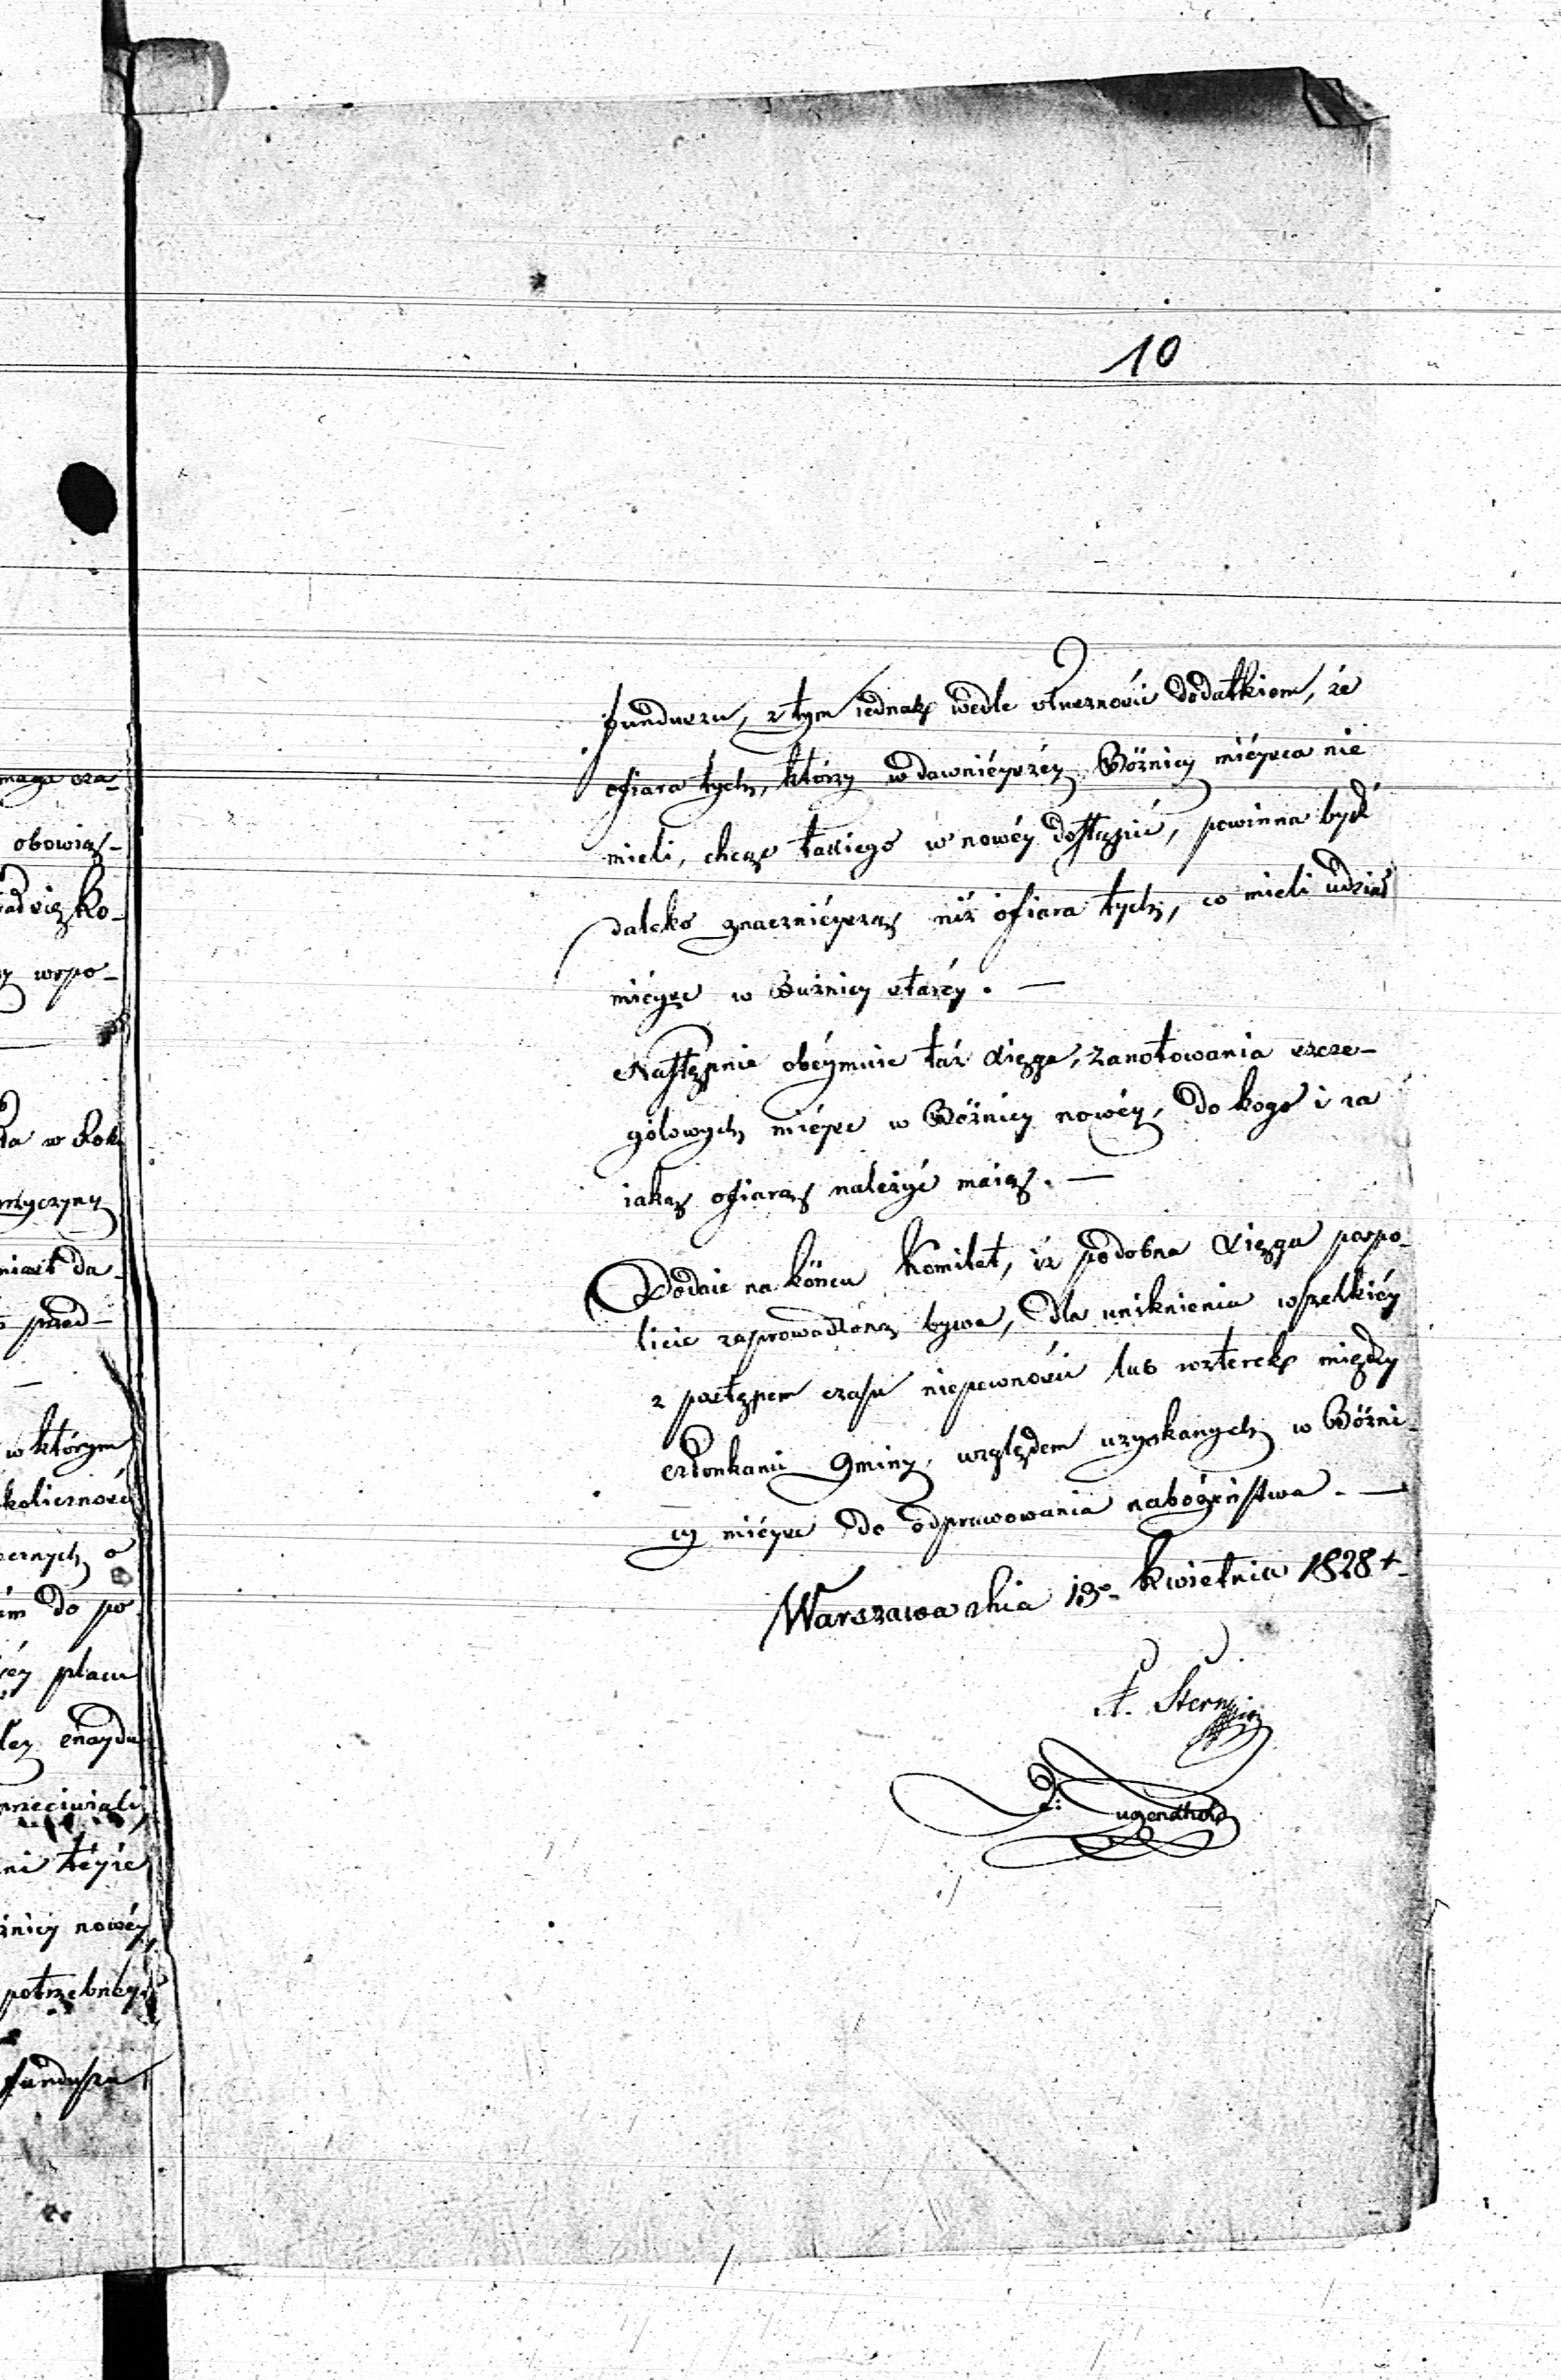 10
funduszu, z tym iednak wedle słuszności dodatkiem, że
ofiara tych, którzy w dawniéyszéy Bóżnicy miéysca nie
mieli, chcąc takiego w nowéy dostąpić, powinna być
daleko znacznieyszą niż ofiara tych, co mieli udział
miéysc w Bużnicy staréy. —
Następnie obéymuie taż Xięga, zanotowania szcze-
gółowych miéysc w Bóżnicy nowéy, do kogo i za
iaką ofiarą należyć maią. —
Dodaie na końcu Komitet, iż podobna Xięga pospo-
licie zaprowadzoną bywa, dla uniknienia wszelkiéy
z postępem czasu niepewności lub usterek między
członkami Gminy, względem uzyskanych w Bóżni-
cy miéysc do odprawowania nabożeństwa. —
Warszawa dnia 13o Kwietnia 1828 r.
A. Stern
J: Tugendhold
obowiąz-
wspo-
w Rok
przyczyny
miast da-
przed-
w którym
koliczność
do po
placu
nowéy
potrzebnéy
fundusza